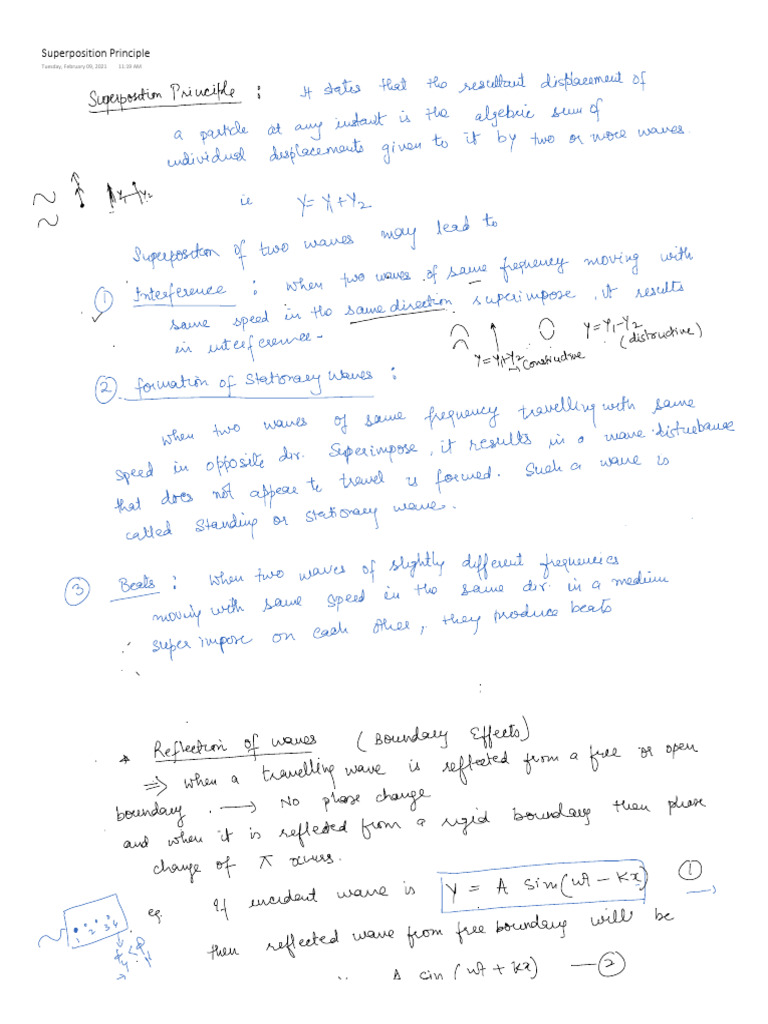 Superposition Principle
Tuesday, February 09, 2021 11:39 AM
Superposition Principle : It states that the resultant displacement of
a particle at any instant is the algebric sum of
individual displacements given to it by two or more waves.
ie Y = Y1 + Y2
Y1 Y2
Superposition of two waves may lead to
① Interference : When two waves of same frequency moving with
same speed in the same direction superimpose, it results
in interference -
Y = Y1+Y2 → Constructive
Y = Y1 - Y2 (distructive)
② formation of Stationary Waves :
When two waves of same frequency travelling with same
speed in opposite dir. Superimpose, it results in a wave disturbance
that does not appear to travel is formed. Such a wave is
called Standing or stationary wave.
③ Beats : When two waves of slightly different frequencies
moving with same speed in the same dir. in a medium
super impose on each other, they produce beats
* Reflection of waves (Boundary Effects)
⇒ When a travelling wave is reflected from a free or open
boundary. → No phase change
and when it is reflected from a rigid boundary then phase
change of π occurs.
eg. If incident wave is Y = A sin(ωt - kx) ①
1 2 3 4
then reflected wave from free boundary will be
A sin (ωt + kx) — ②